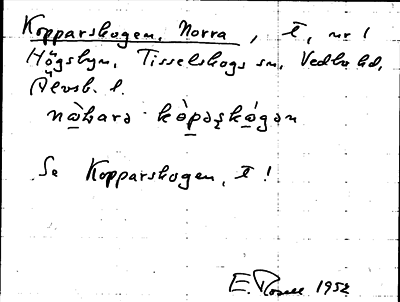 Kopparskogen, Norra, t, nr 1
Högsbyn, Tisselskogs sn, Vedbo hd,
Älvsb. l.
nò̱ƚara kòpaʂkógən
Se Kopparskogen, t!
E. Rosell 1952